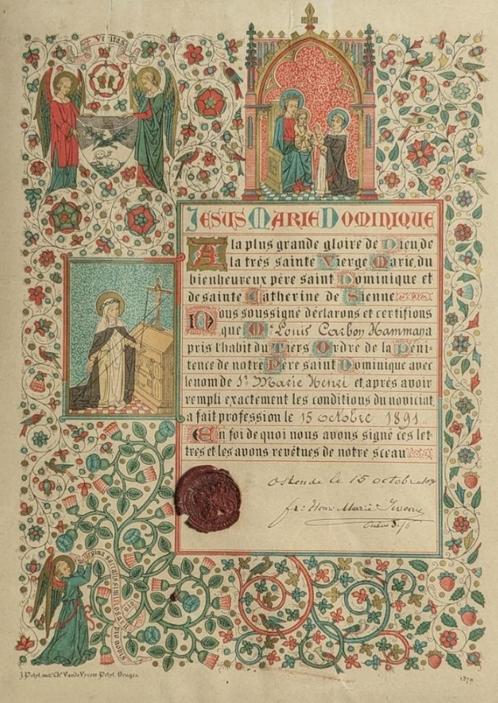 VERITAS
JESUS MARIE DOMINIQUE
A la plus grande gloire de Dieu, de
la très sainte Vierge Marie, du
bienheureux père saint Dominique et
de sainte Catherine de Sienne
Nous soussigné déclarons et certifions
que Mr Louis Carbon Hamman a
pris l'habit du Tiers Ordre de la Péni
tence de notre Père saint Dominique avec
le nom de St. Marie Henri et après avoir
rempli exactement les conditions du noviciat
a fait profession le 15 octobre 1891.
En foi de quoi nous avons signé ces let
tres et les avons revêtues de notre sceau
Ostende le 15 octobre
fr: Marie
1879